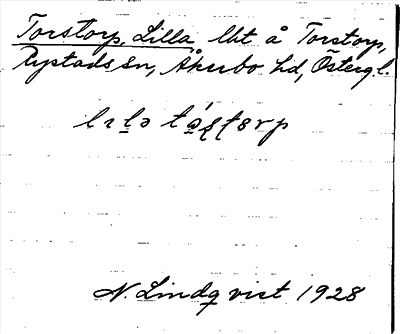 Torstorp, Lilla lht å Torstorp,
Rystads sn, Åkerbo hd, Östergl.
N. Lindqvist 1928